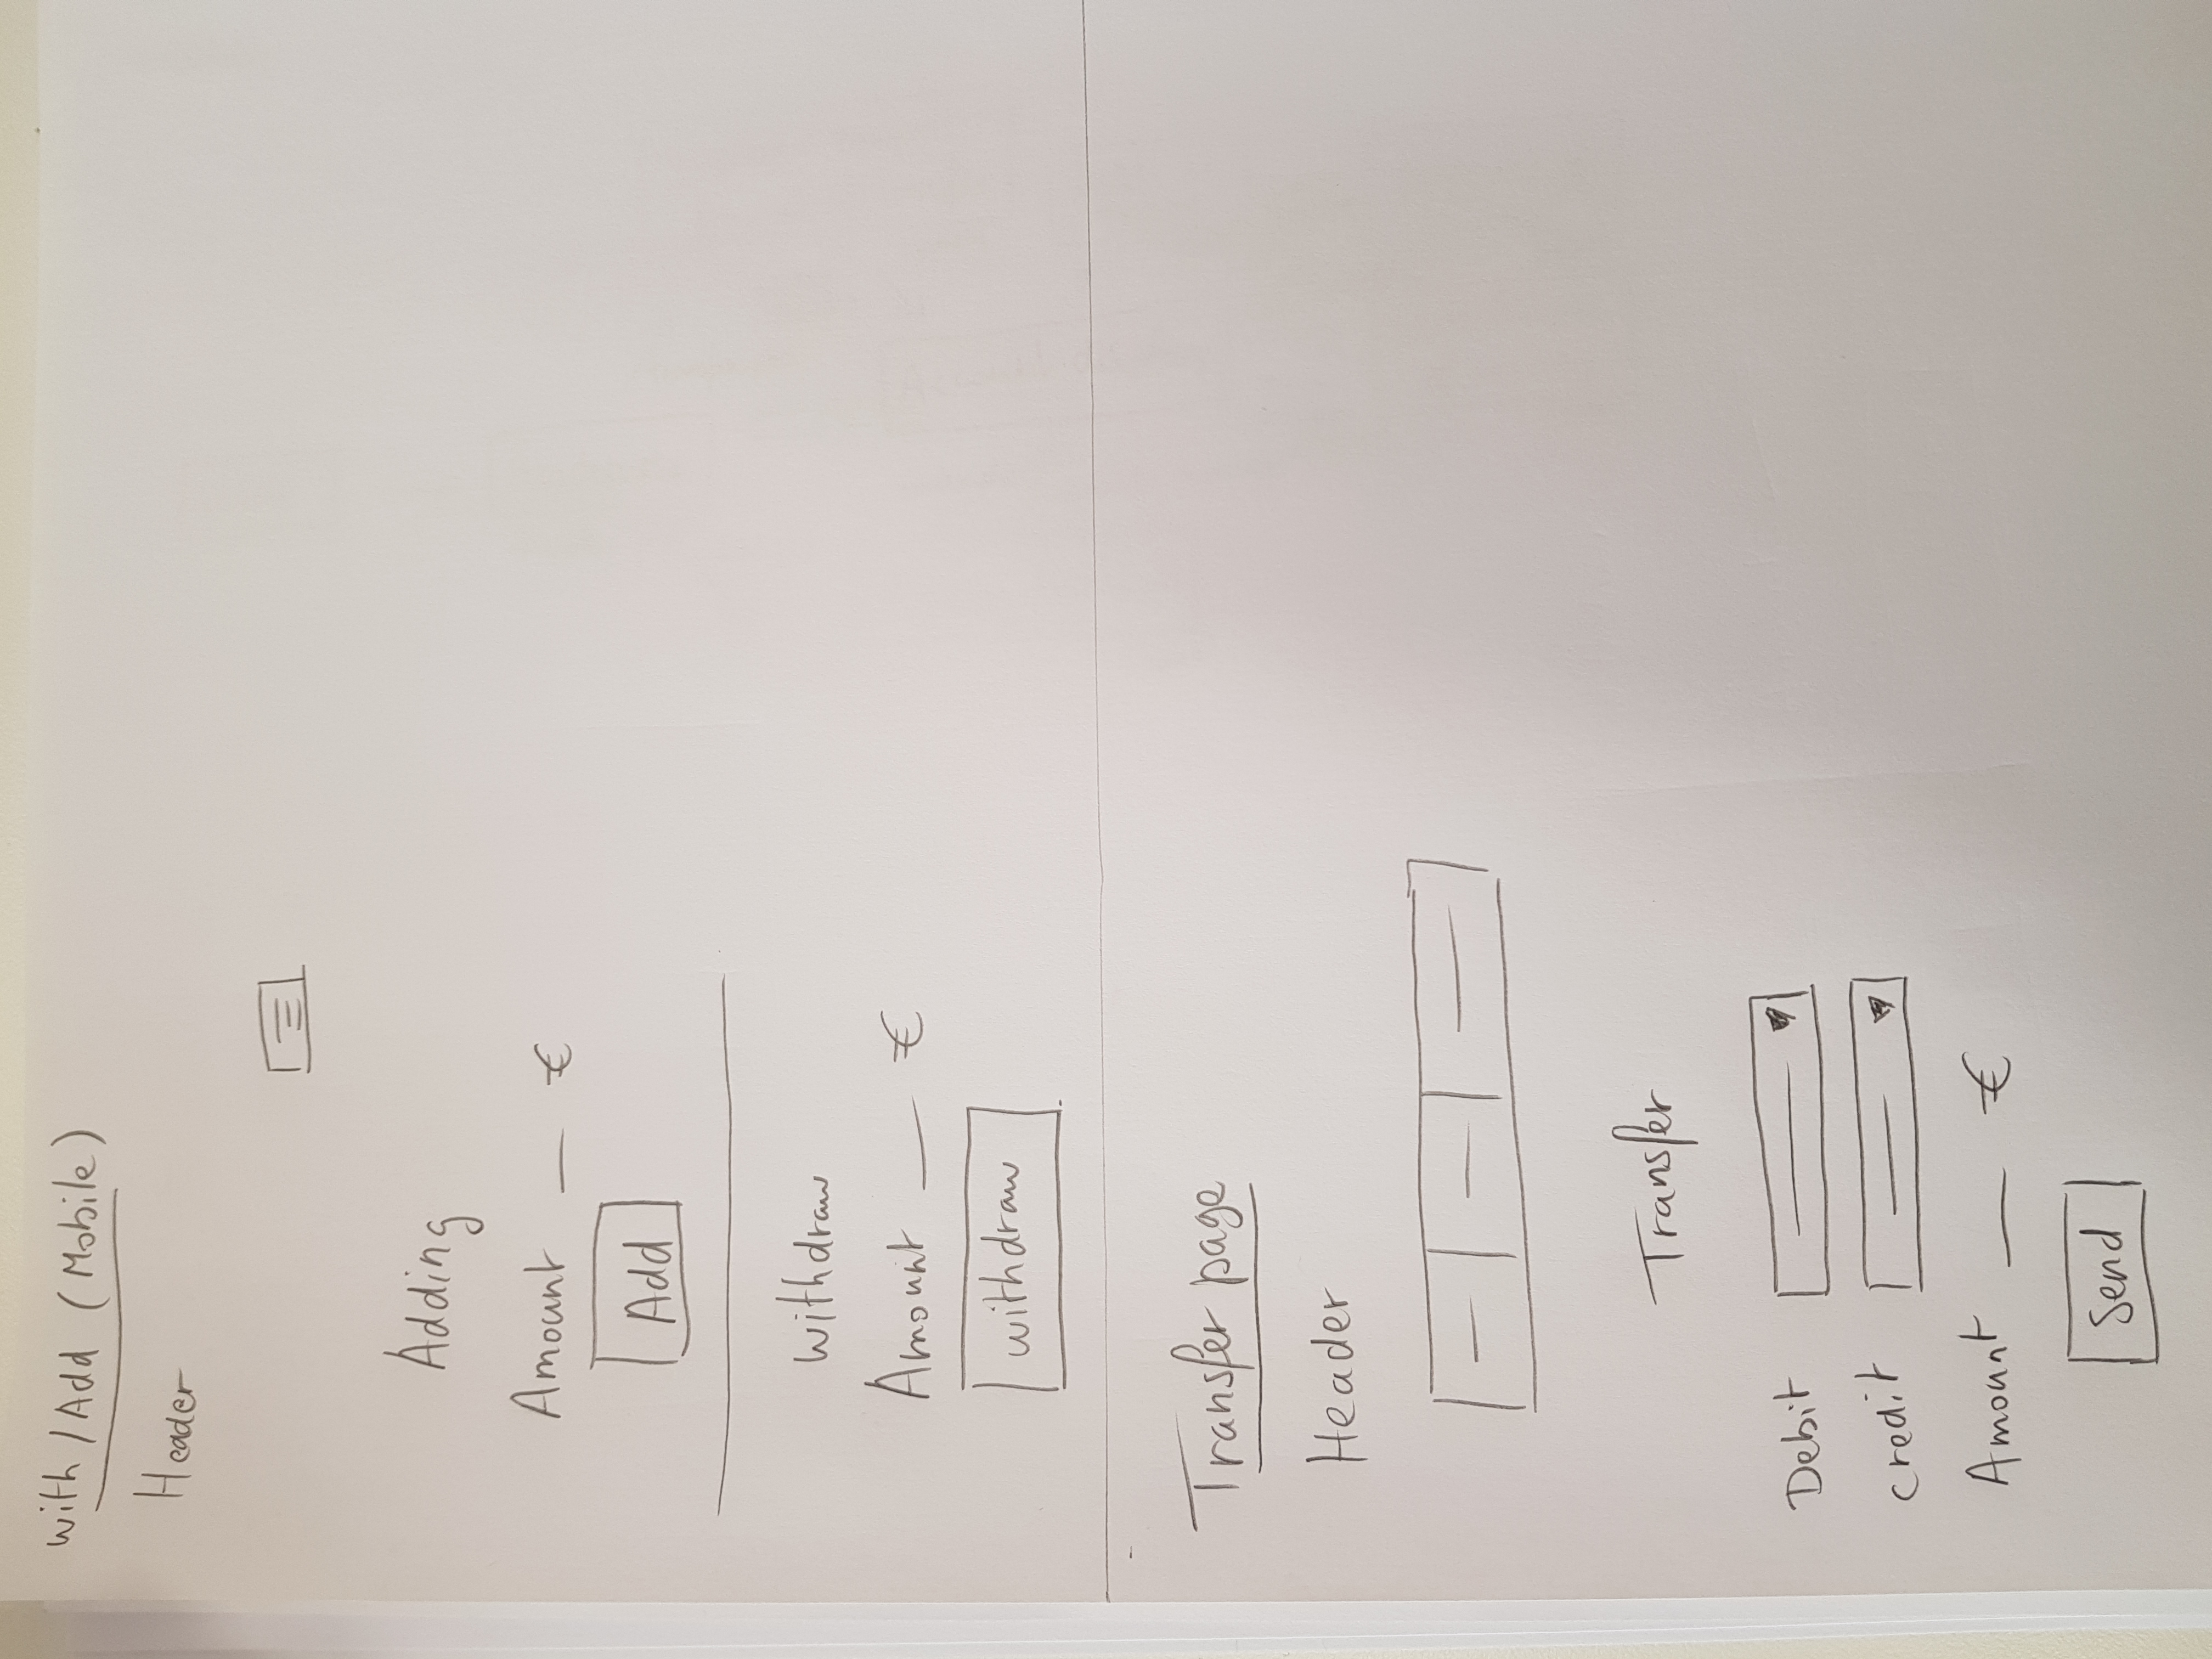 with / Add (Mobile)
Header
Adding
Amount __ €
Add
withdraw
Amount __ €
withdraw
Transfer page
Header
Transfer
Debit
credit
Amount __ €
Send